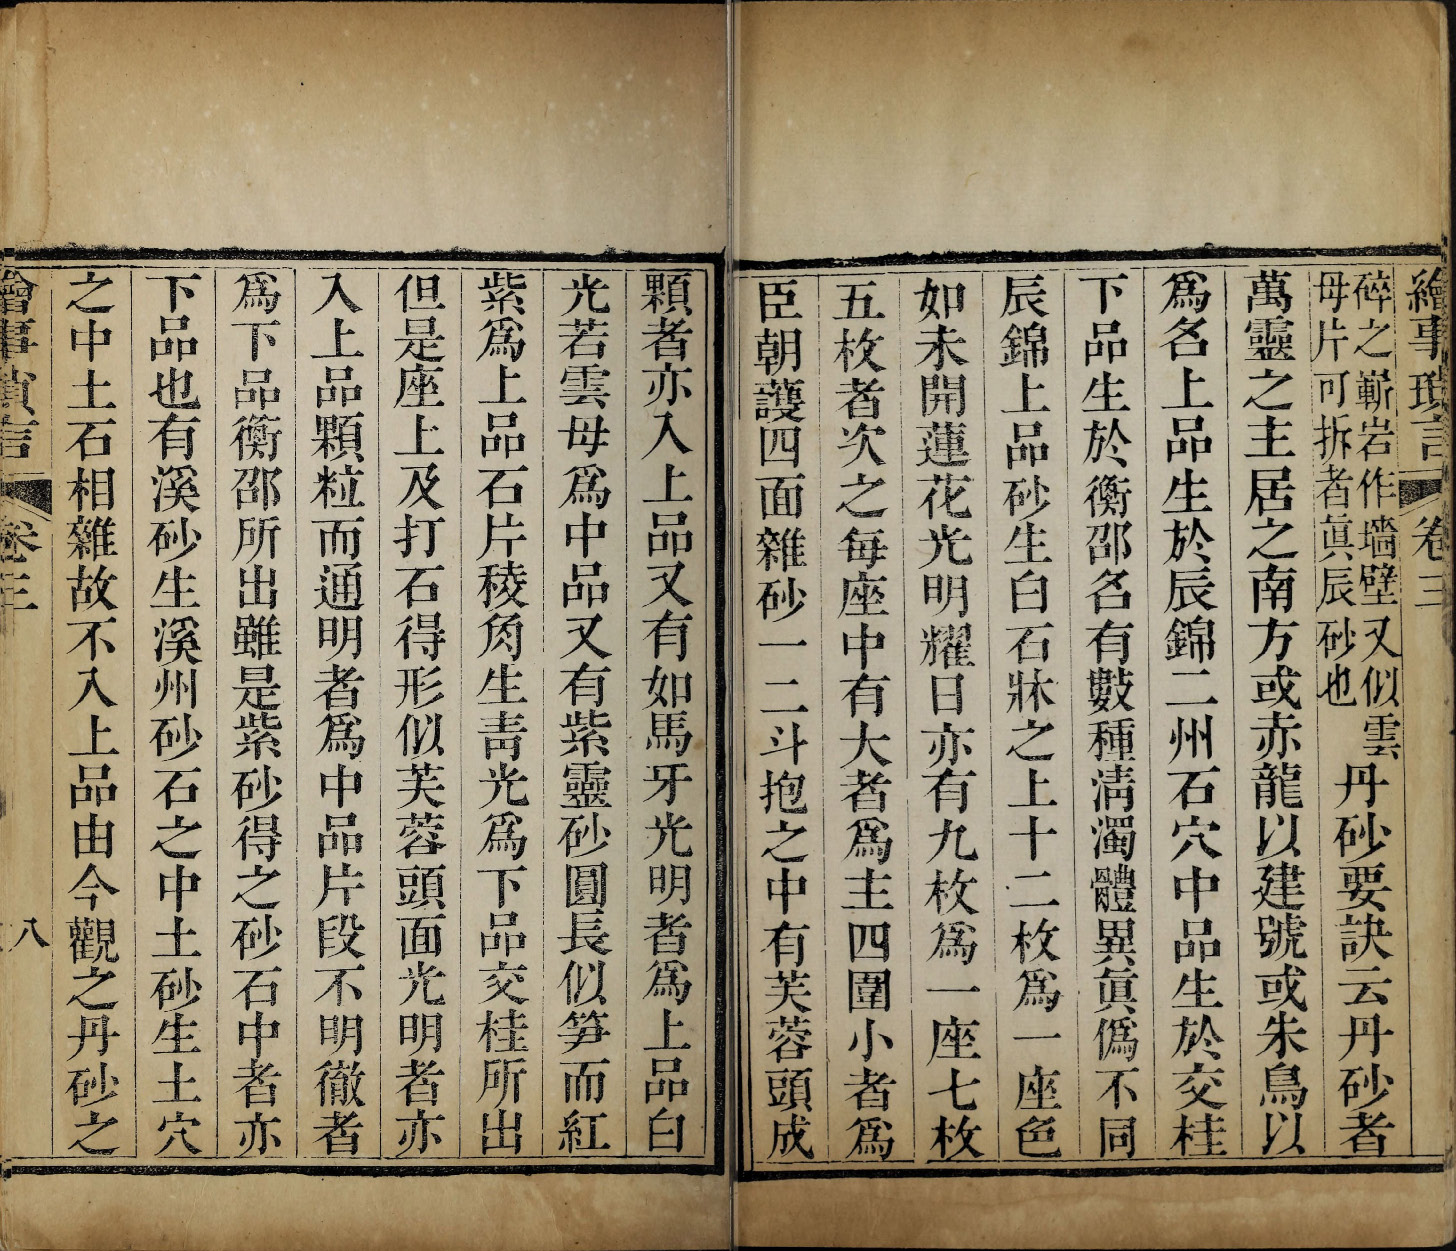 繪事瑣言 卷三
碎之嶄岩作墻壁又似雲
母片可拆者眞辰砂也
丹砂要訣云丹砂者
萬靈之主居之南方或赤龍以建號或朱鳥以
爲名上品生於辰錦二州石穴中品生於交桂
下品生於衡邵名有數種淸濁體異眞僞不同
辰錦上品砂生白石牀之上十二枚爲一座色
如未開蓮花光明耀日亦有九枚爲一座七枚
五枚者次之每座中有大者爲主四圍小者爲
臣朝護四面雜砂一二斗抱之中有芙蓉頭成
顆者亦入上品又有如馬牙光明者爲上品白
光若雲母爲中品又有紫靈砂圓長似笋而紅
紫爲上品石片稜角生靑光爲下品交桂所出
但是座上及打石得形似芙蓉頭面光明者亦
入上品顆粒而通明者爲中品片段不明徹者
爲下品衡邵所出雖是紫砂得之砂石中者亦
下品也有溪砂生溪州砂石之中土砂生土穴
之中土石相雜故不入上品由今觀之丹砂之
繪事瑣言 卷三 八